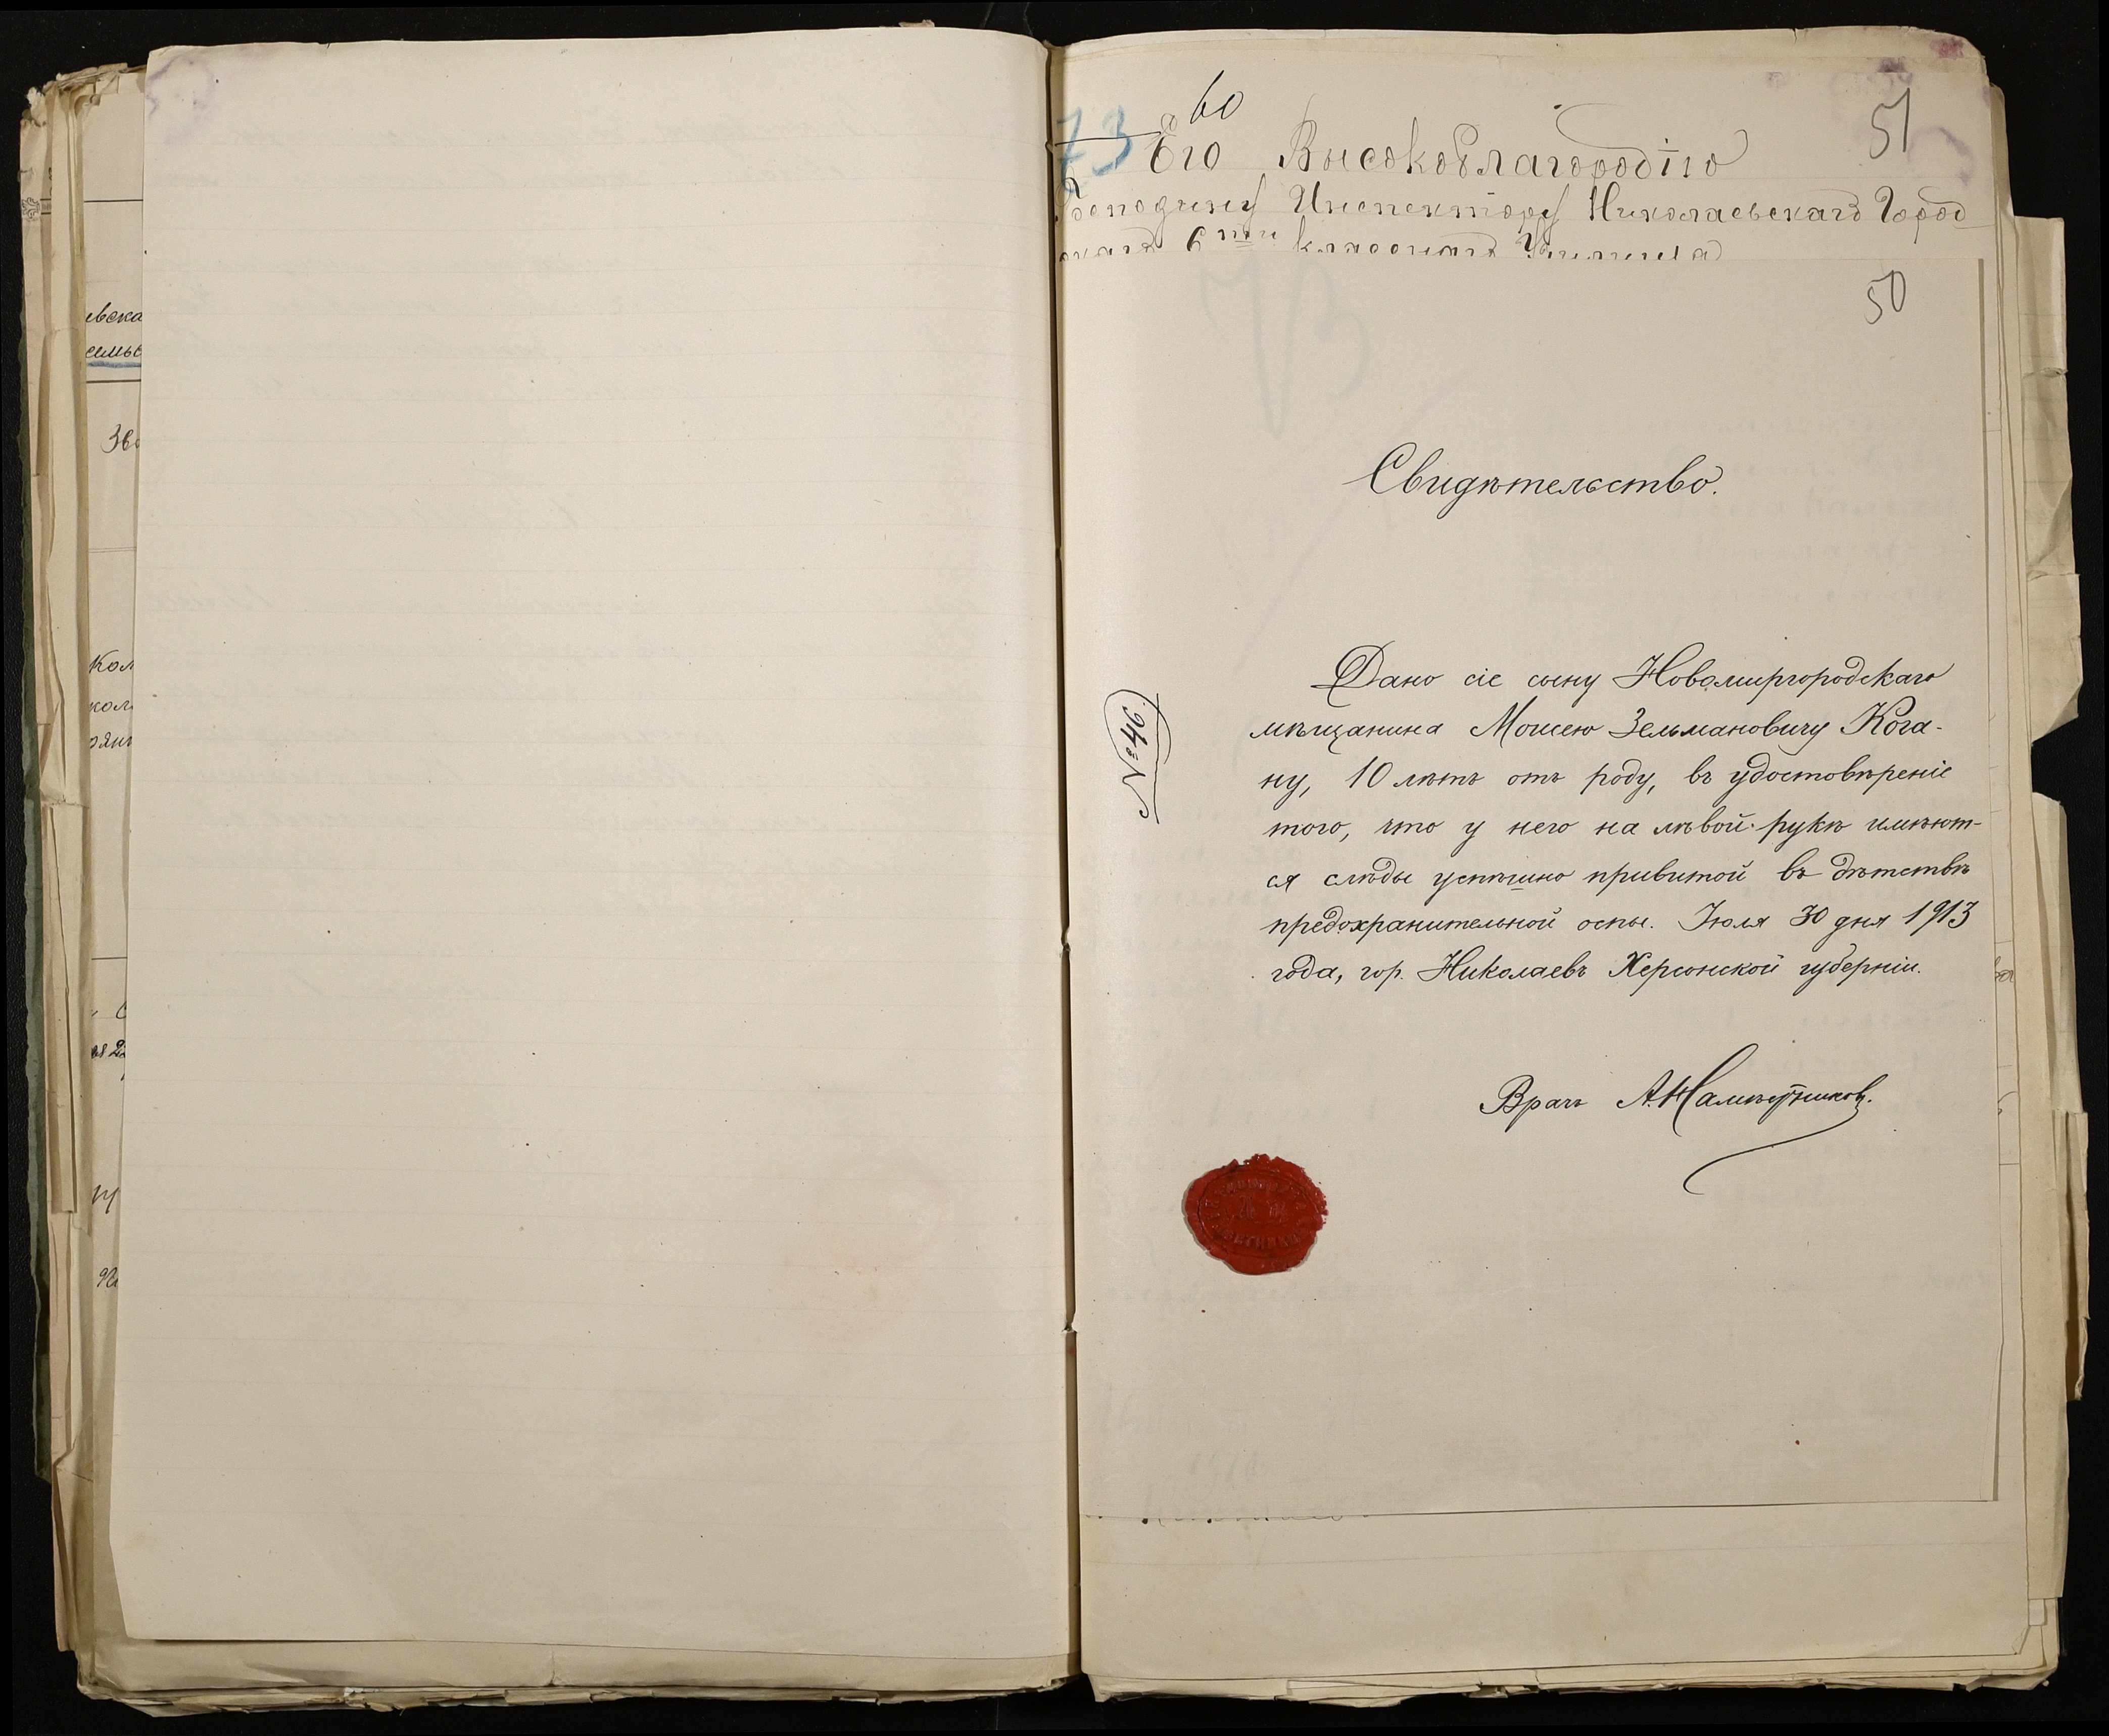 60
73
51
Его Высокоблагородію
Господину Инспектору Николаевскаго Город
скаго 6ти класснаго Училища
50
Свидѣтельство.
№ 46.
Дано сіе сыну Новомиргородскаго
мѣщанина Мошею Зельмановичу Кога-
ну, 10 лѣтъ отъ роду, въ удостовѣреніе
того, что у него на лѣвой рукѣ имѣют-
ся слѣды успѣшно привитой въ дѣтствѣ
предохранительной оспы. Іюля 30 дня 1913
года, гор. Николаевъ Херсонской губерніи.
Врачъ А. Намѣстниковъ.